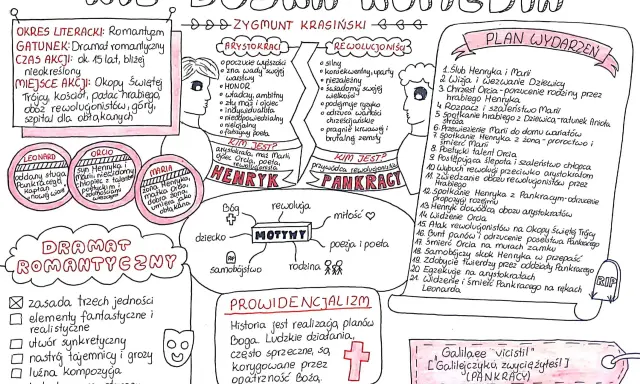 NIE-BOSKA KOMEDIA
ZYGMUNT KRASIŃSKI
OKRES LITERACKI: Romantyzm
GATUNEK: Dramat romantyczny
CZAS AKCJI: ok. 15 lat, bliżej
nieokreślony
MIEJSCE AKCJI: Okopy Świętej
Trójcy, kościół, pałac hrabiego,
obóz rewolucjonistów, góry,
szpital dla obłąkanych
LEONARD
oddany sługa
Pankracego
kapłan
nowej wiary
ORCIO
syn Henryka i
Marii, niewidomy
chłopiec z talentem
poetyckim i
zdolnościami
MARIA
żona Henryka
matka Orcia,
dobra żona,
umiera jako
obłąkana
ARYSTOKRACI
poczucie wyższości
zna wady swojej
warstwy
HONOR
władczy, ambitny
zły mąż i ojciec
indywidualista
nieodpowiedzialny
nielojalny
fałszywy poeta
KIM JEST?
arystokrata, mąż Marii,
ojciec Orcia, poeta,
HENRYK
REWOLUCJONIŚCI
silny
konsekwentny, uparty
niezależny
świadomy swojej
wielkości
podejmuje ryzyko
odrzuca wartości
chrześcijańskie
pragnie krwawej i
brutalnej zemsty
KIM JEST?
przywódca rewolucjonistów
PANKRACY
MOTYWY
Bóg
rewolucja
miłość
dziecko
poezja i poeta
samobójstwo
rodzina
PLAN WYDARZEŃ
1. Ślub Henryka i Marii
2. Wizja i wezwanie Dziewicy
3. Chrzest Orcia - porzucenie rodziny przez
hrabiego Henryka
4. Rozpacz i szaleństwo Marii
5. Spotkanie hrabiego z Dziewicą - ratunek Anioła
Stróża
6. Przewiezienie Marii do domu wariatów
7. Spotkanie Henryka z żoną - proroctwo i
śmierć Marii
8. Poetycki talent Orcia
9. Postępująca ślepota i szaleństwo chłopca
10. Wybuch rewolucji przeciwko arystokratom
11. Zwiedzanie obozu rewolucjonistów przez
Henryka
12. Spotkanie Henryka z Pankracym - odrzucenie
propozycji rozejmu
13. Henryk dowódcą obozu arystokratów
14. Widzenie Orcia
15. Atak rewolucjonistów na Okopy Świętej Trójcy
16. Bunt panów i odrzucenie poselstwa Pankracego
17. Śmierć Orcia na murach zamku
18. Samobójczy skok Henryka w przepaść
19. Zdobycie twierdzy przez oddziały Pankracego
20. Egzekucje na arystokratach
21. Widzenie i śmierć Pankracego na rękach
Leonarda
RIP
DRAMAT
ROMANTYCZNY
zasada trzech jedności
elementy fantastyczne i
realistyczne
utwór synkretyczny
nastrój tajemnicy i grozy
luźna kompozycja
PROWIDENCJALIZM
Historia jest realizacją planów
Boga. Ludzkie działania,
często sprzeczne, są
korygowane przez
opatrzność Bożą.
"Galilaee vicisti!"
[Galilejczyku, zwyciężyłeś!]
(PANKRACY)